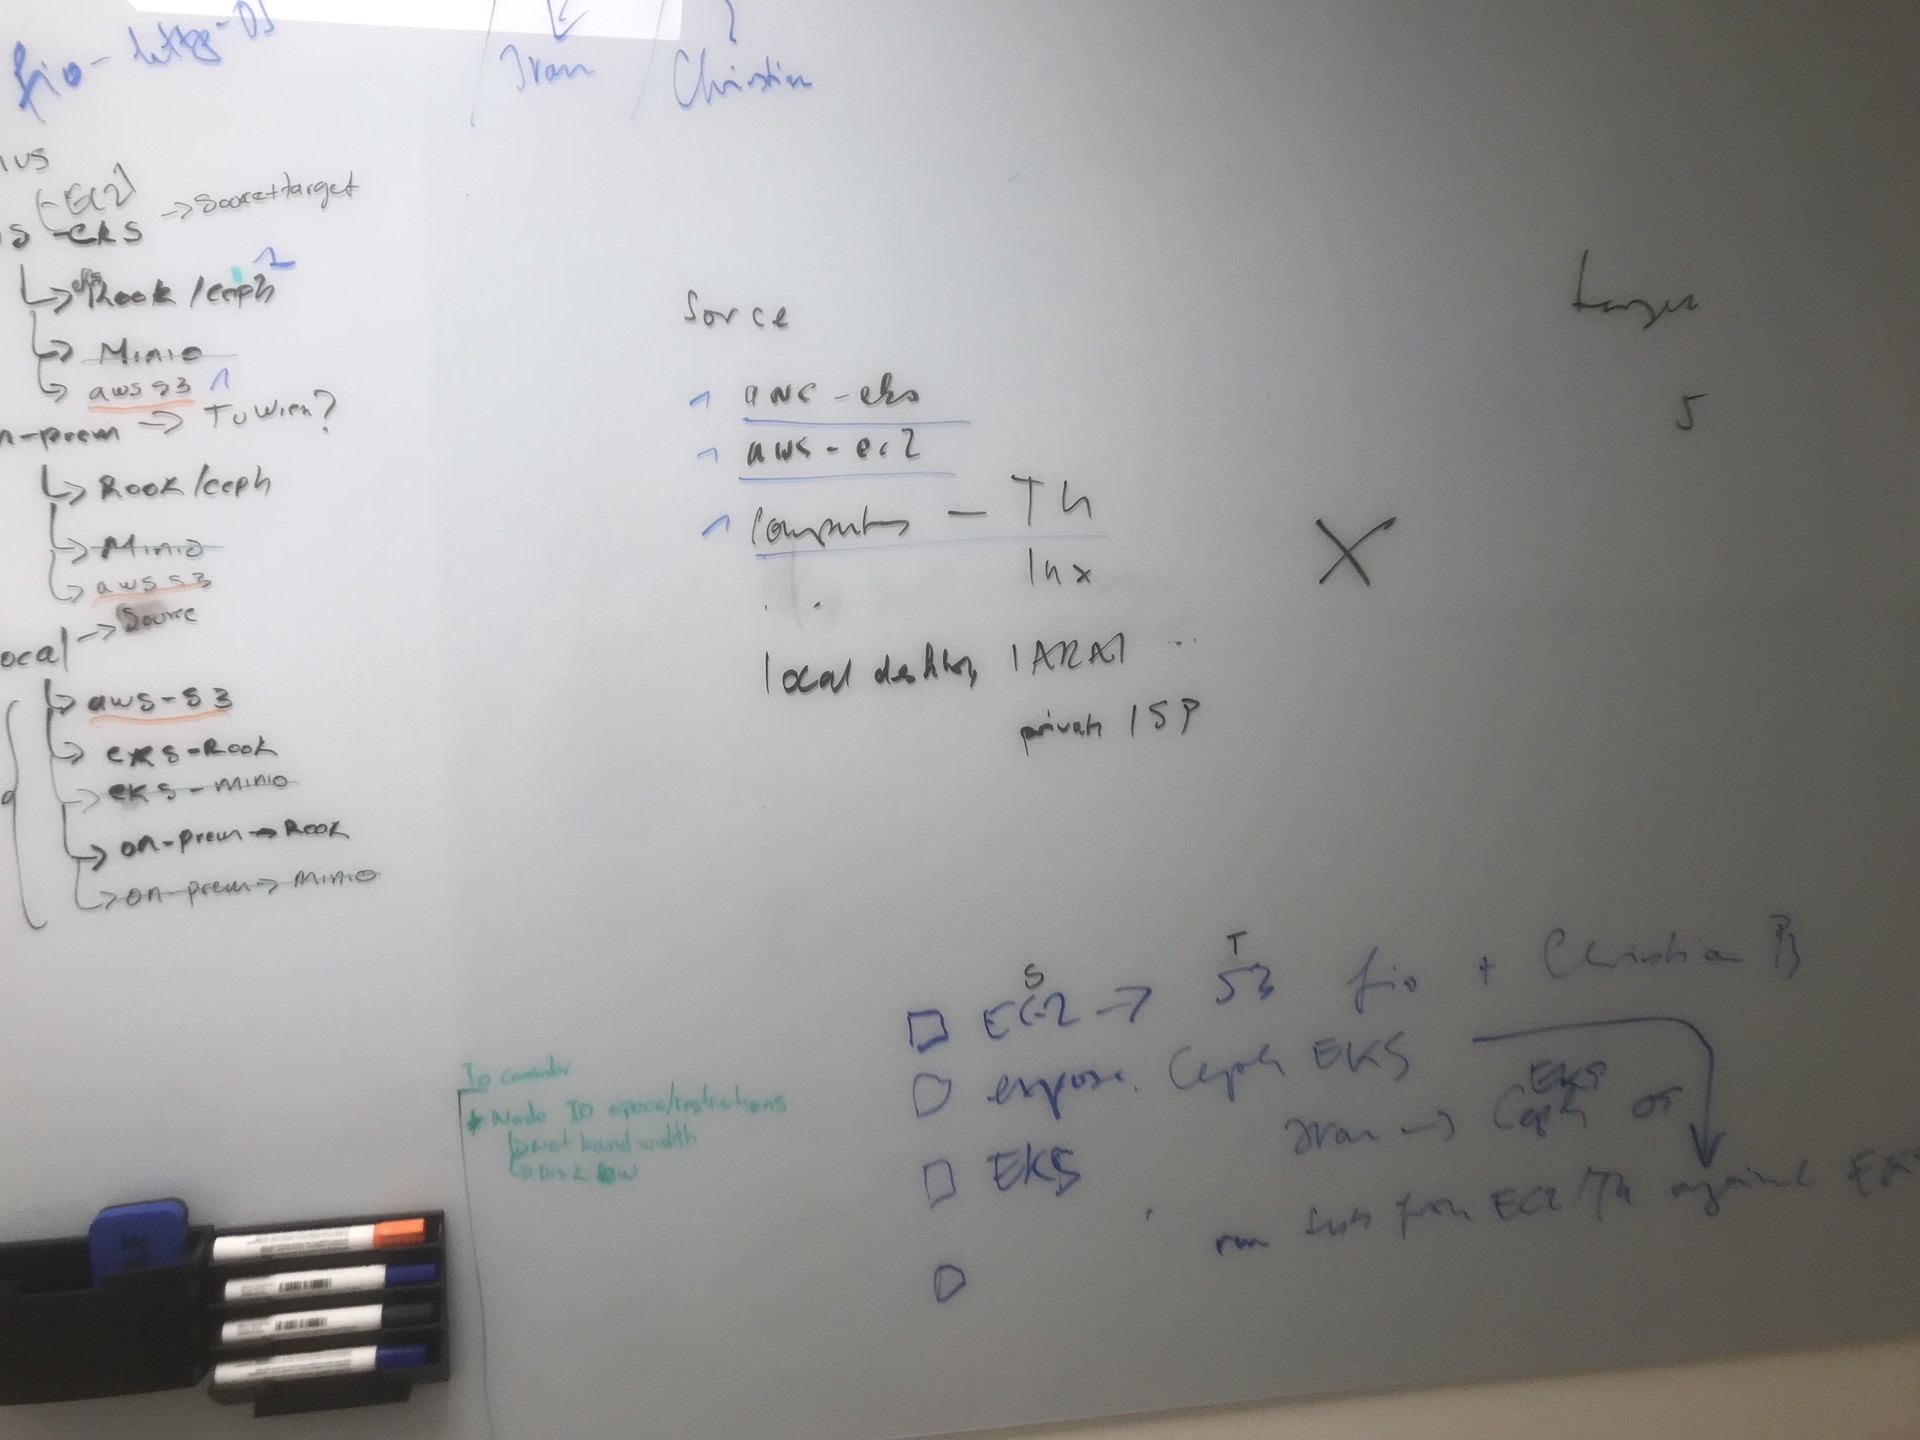 fio-https-DJ
Ivan / Christian
EC2
-eks -> source+target
Rook/ceph 2
Minio
aws s3 1
n-prem -> TU Wien?
Rook/ceph
Minio
aws s3
ocal -> Source
aws-s3
eks-Rook
eks-minio
on-prem -> Rook
on-prem -> minio
Sorce
1 aws-eks
1 aws-ec2
1 — TU
lnx
local desktop,
private ISP
5
X
To consider
* Node IO restrictions
Net bandwidth
Disk BW
S T
EC2 -> S3 fio + Christian B
expose Ceph EKS
EKS
Ivan -> Ceph
EKS
run tests from EC2/TU against EKS